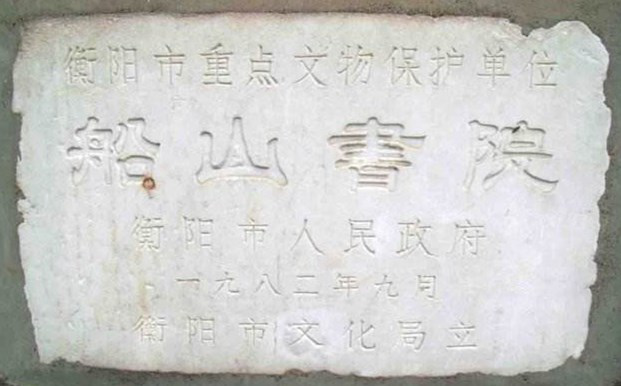 衡阳市重点文物保护单位
船山書院
衡阳市人民政府
一九八二年九月
衡阳市文化局立